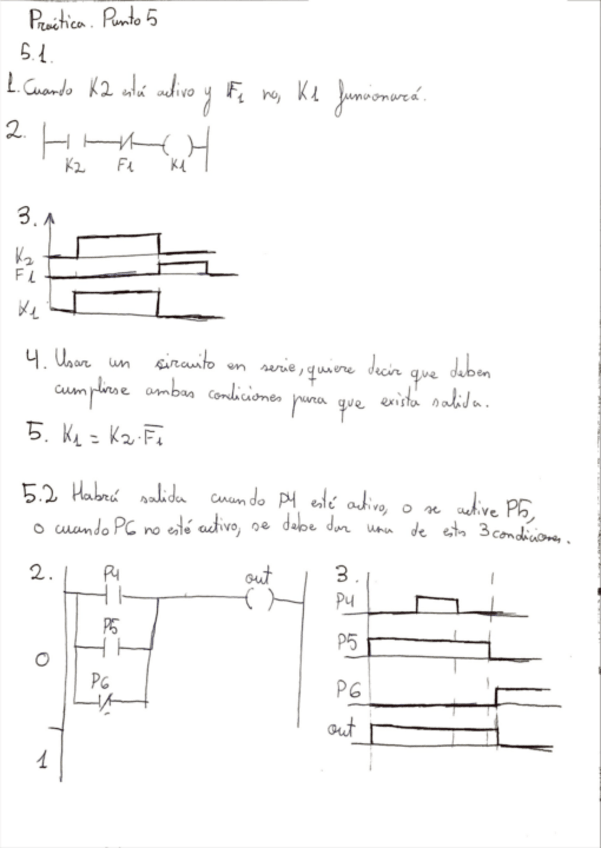 Práctica. Punto 5
5.1.
1. Cuando K2 está activo y F1 no, K1 funcionará.
2.
K2 F1 K1
3.
K2
F1
K1
4. Usar un circuito en serie, quiere decir que deben
cumplirse ambas condiciones para que exista salida.
5. K1 = K2·F̅1
5.2 Habrá salida cuando P4 esté activo, o se active P5,
o cuando P6 no esté activo, se debe dar una de estas 3 condiciones.
2. P4 out
P5
0
P6
1
3.
P4
P5
P6
out